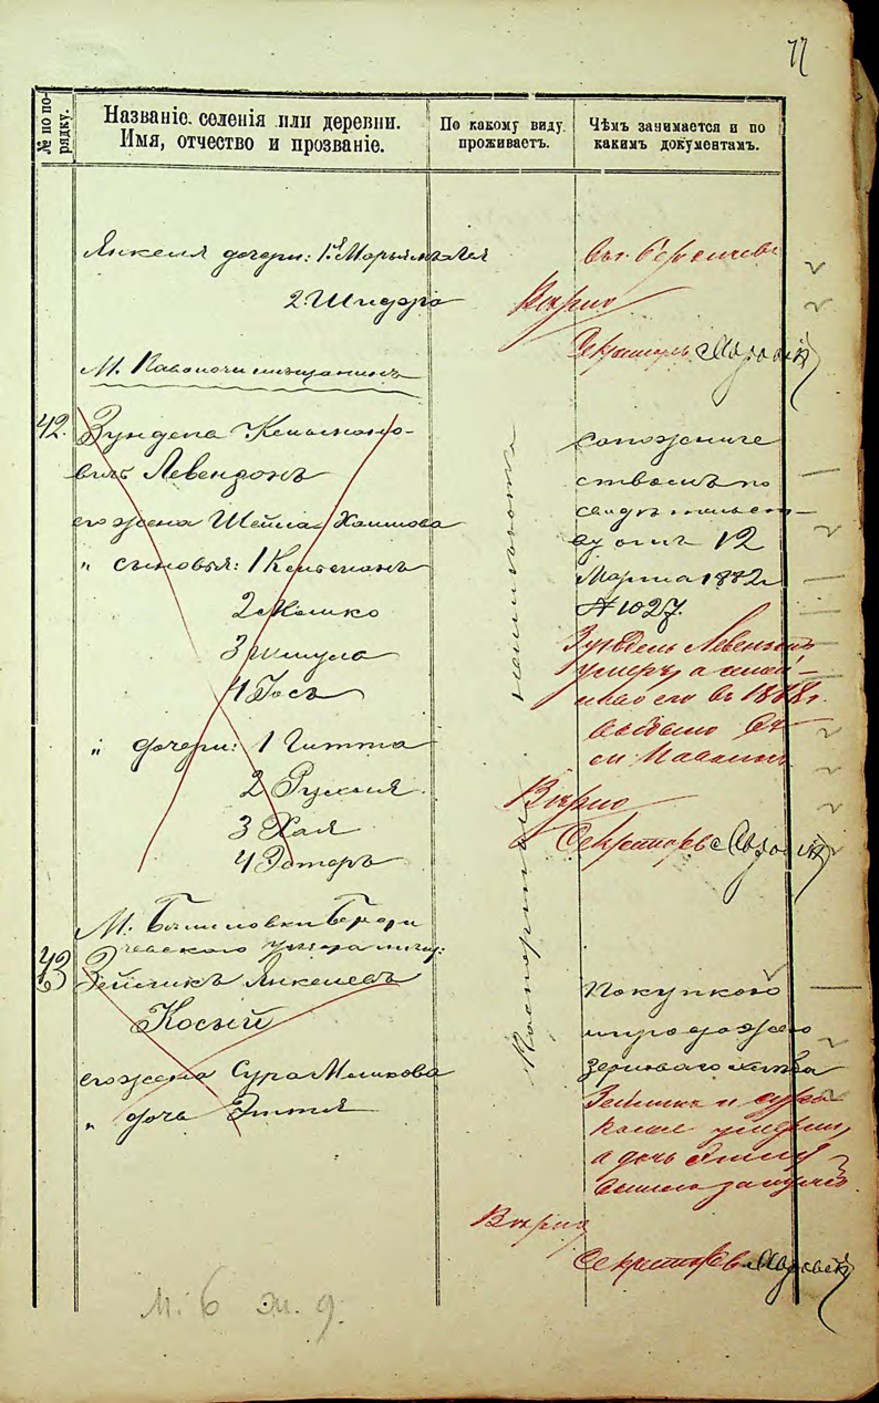 77
№ по по-
рядку.
Названіе селенія или деревни.
Имя, отчество и прозваніе.
По какому виду
проживаетъ.
Чѣмъ занимается и по
какимъ документамъ.
Янкеля дочери: 1. Марьямъ-Лея
2. Шифра
въ г. Бердичевѣ
Вѣрно
Секретарь
М. Паволочи мѣщанинъ
42.
Зунделя Кельмано-
вичъ Левендонъ
его жена Шейла Хаимова
" сыновья: 1 Кельманъ
2 Мошко
3 Шмула
4 Іосъ
" дочери: 1 Гитта
2 Рухля
3 Хая
4 Эстеръ
сапожниче
ствомъ по
свидѣтельст-
ву отъ 12
Марта 1882 г.
№ 1027.
Зундель Левензонъ
умеръ, а семей-
ство его въ 1888 г.
выбыло въ
м. Паволочь
Вѣрно
Секретарь
М. Бердичевского уѣзда мѣщ:
43
Зейликъ Янкелевъ
Косый
его жена Сура Мошкова
" дочь Эттля
Покупкою
и продажею
зерноваго хлѣба
Зейликъ и Сура
Косые умерли,
а дочь
вышла замужъ
Вѣрно
Секретарь
М. 6 ж. 9.